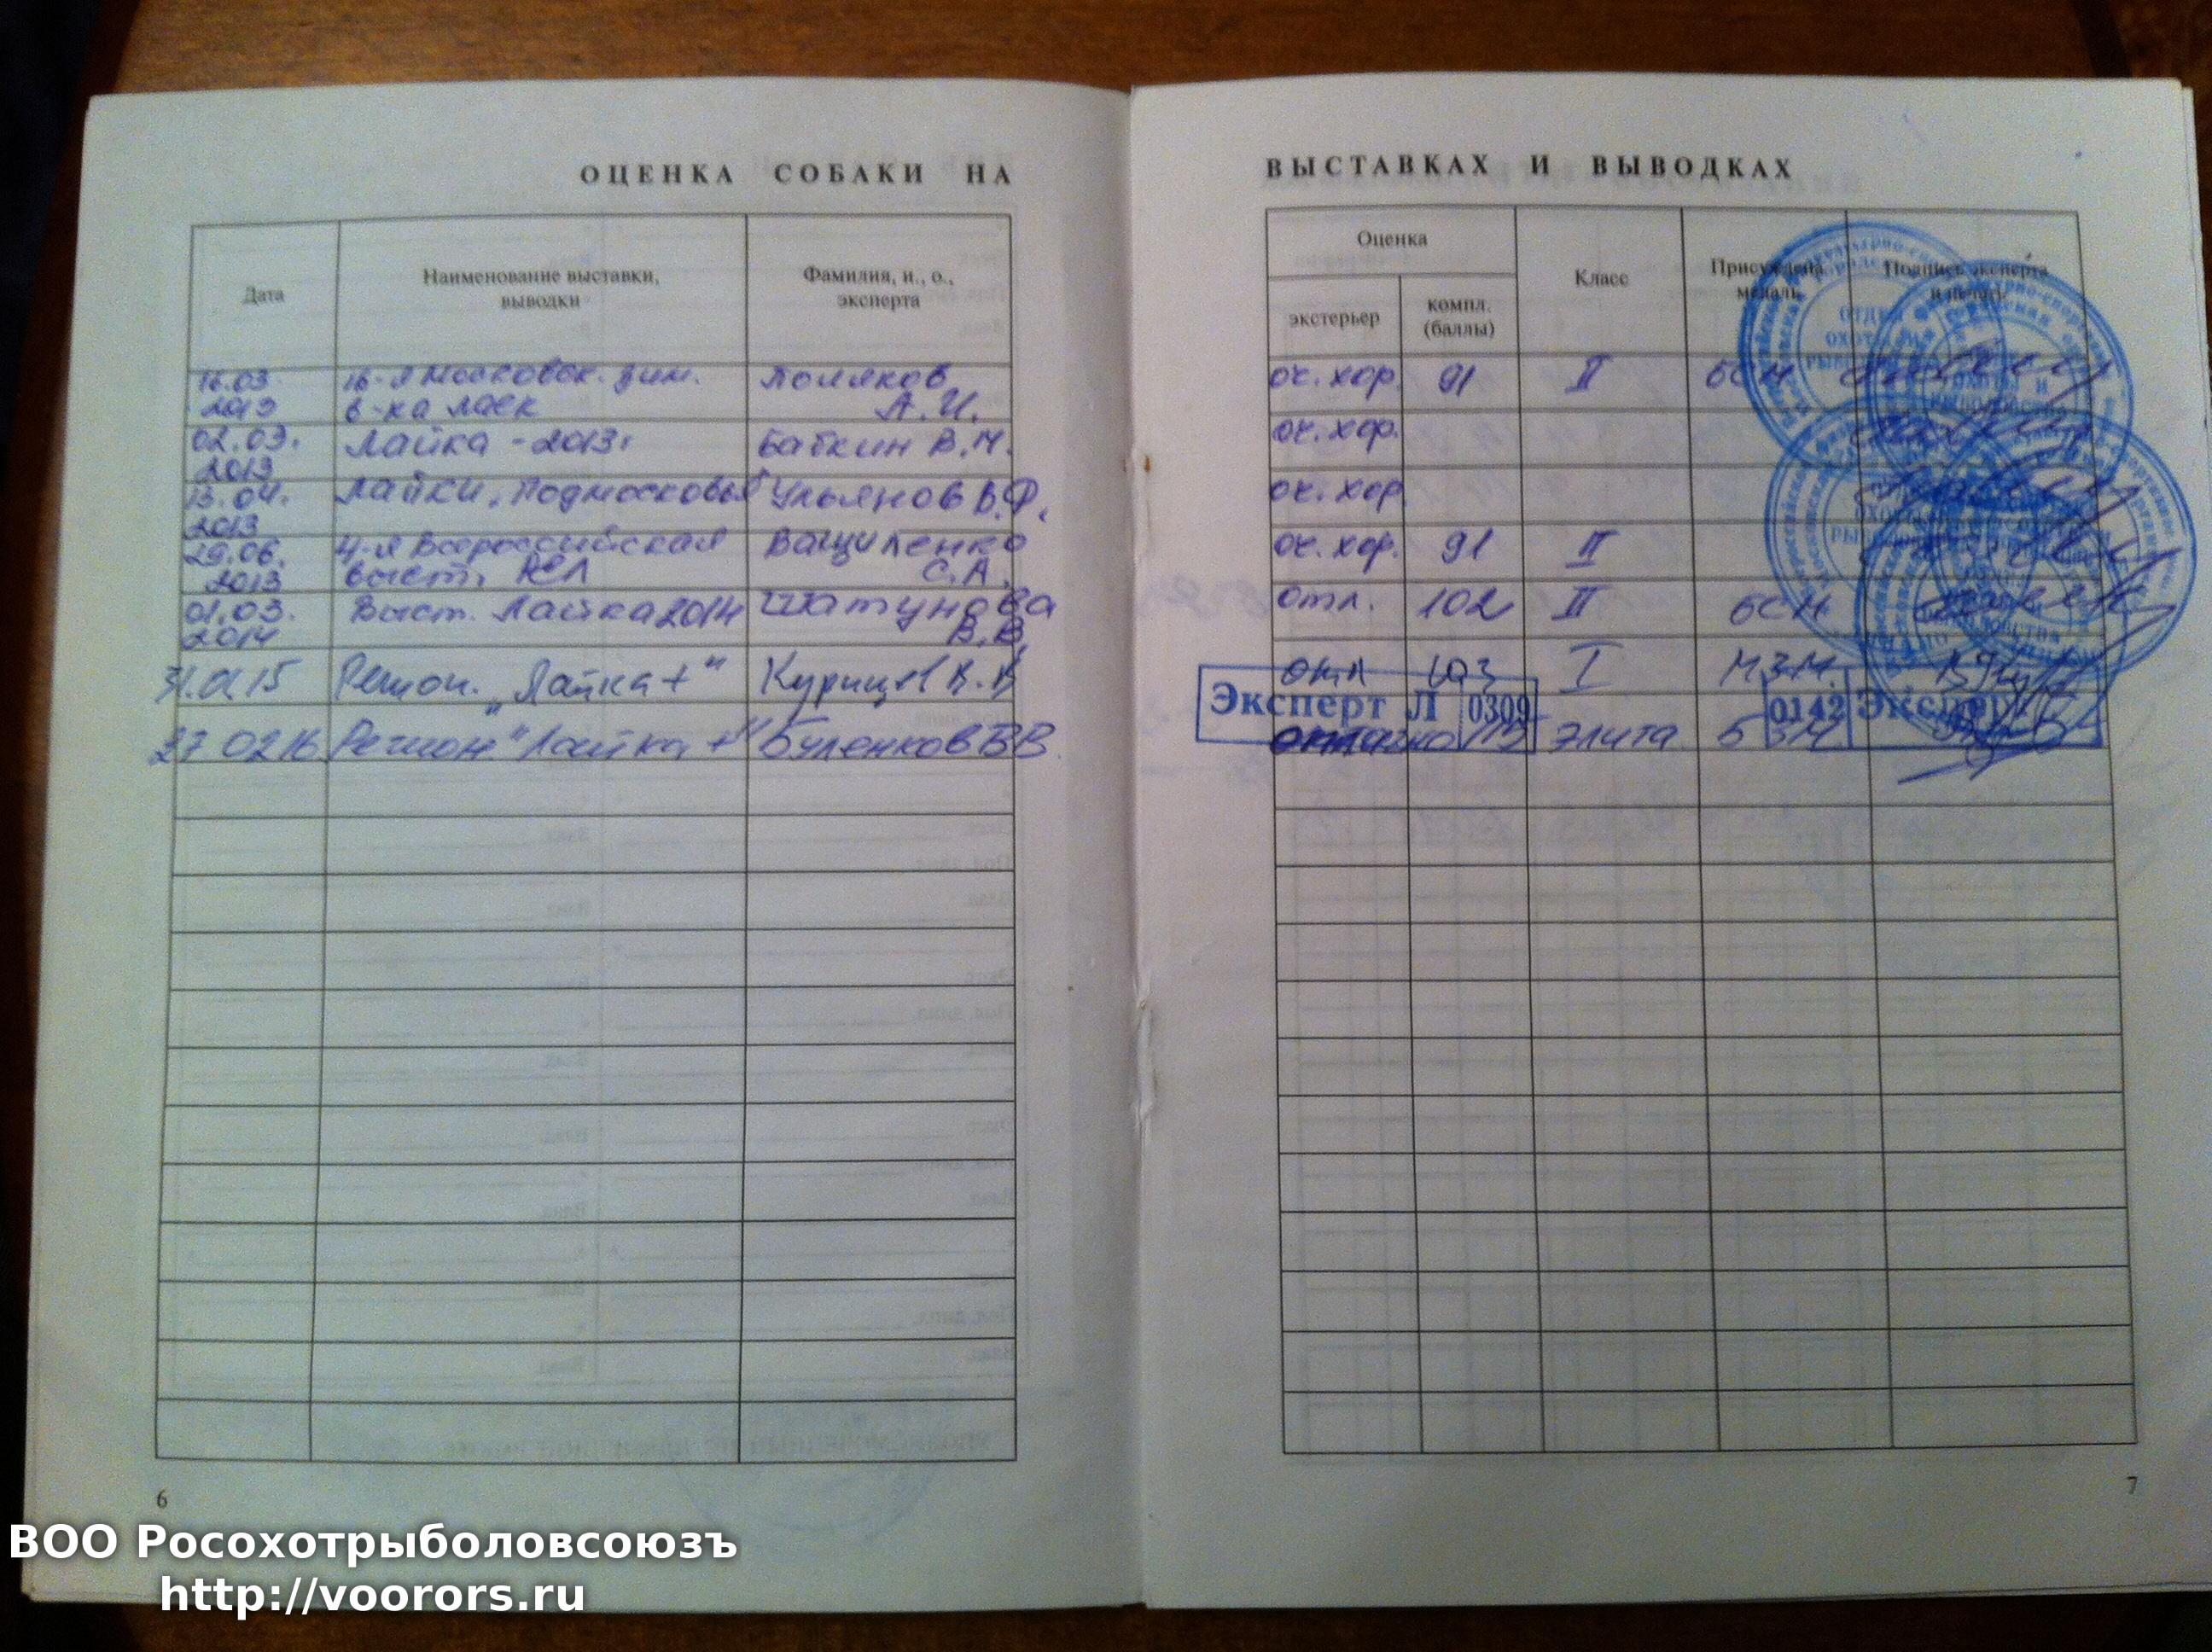 ОЦЕНКА СОБАКИ НА ВЫСТАВКАХ И ВЫВОДКАХ
Дата
Наименование выставки,
выводки
Фамилия, и., о.,
эксперта
Оценка
экстерьер
компл.
(баллы)
Класс
Присуждена
медаль
Подпись эксперта
и печать
16.03. 16-я Московск. зим. Поляков оч. хор. 91 II БСМ
2013 в-ка лаек А.И.
02.03. Лайка - 2013г Бабкин В.М. оч. хор.
2013
13.04. Лайки, Подмосковья Ульянов В.Ф. оч. хор
2013
29.06. 4-я Всероссийская Ващипенко оч. хор. 91 II
2013 выст. С.А.
01.03. Выст. Лайка 2014 Шатунова отл. 102 II БСМ
2014 В.В.
31.01.15 Регион. „Лайка+" В.В. отл 103 I МЗМ.
Эксперт Л 0309
0142 Эксперт
27 02 16 Регион "Лайка +" Буленков ВВ элита БЗМ
6
7
ВОО Росохотрыболовсоюзъ
http://voorors.ru